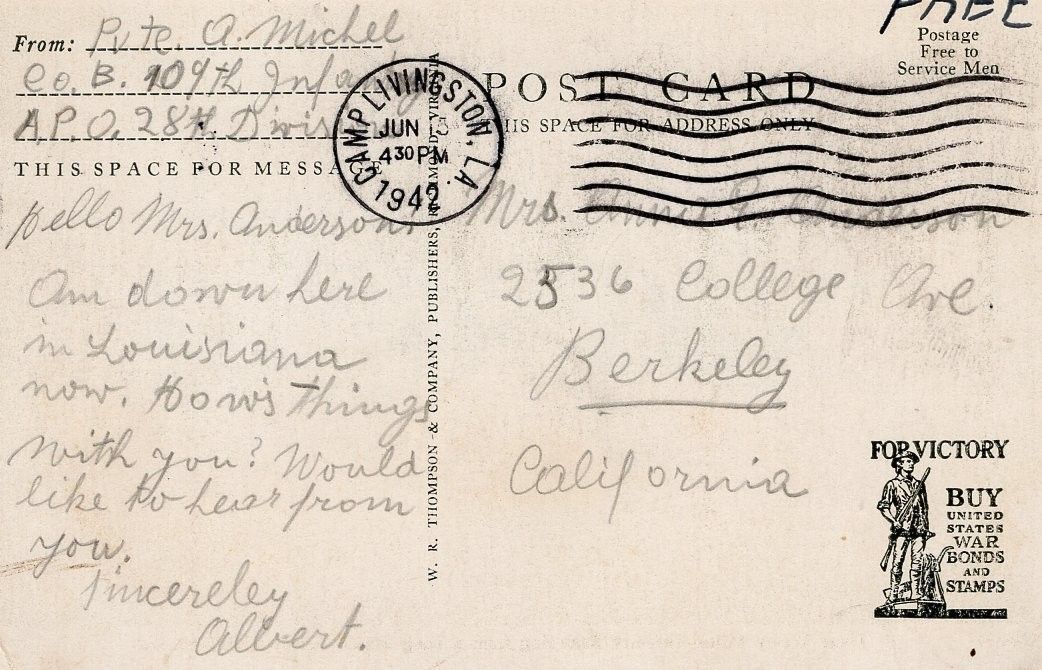 From: Pvte. A. Michel
Co. B. 109th Infantry
A.P.O. 28th Division
THIS SPACE FOR MESSAGE
Hello Mrs. Anderson:
Am down here
in Louisiana
now. How's things
with you? Would
like to hear from
you.
Sincereley
Albert.
W. R. THOMPSON & COMPANY, PUBLISHERS, RICHMOND, VIRGINIA
CAMP LIVINGSTON, LA.
JUN
4 30 PM
1942
FREE
Postage
Free to
Service Men
POST CARD
THIS SPACE FOR ADDRESS ONLY
Mrs. Anderson
2536 College Ave.
Berkeley
California
FOR VICTORY
BUY
UNITED
STATES
WAR
BONDS
AND
STAMPS